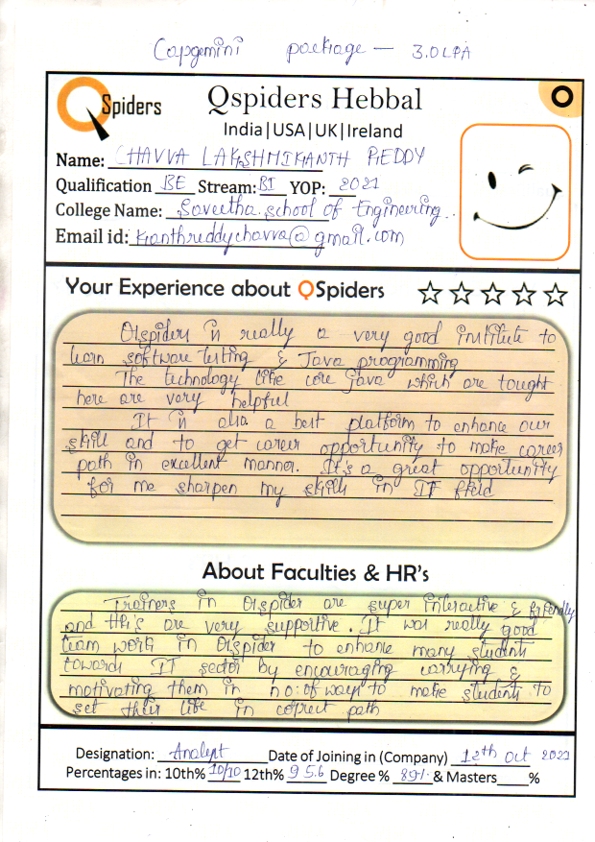 Capgemini package – 3.0LPA
QSpiders
Qspiders Hebbal
India|USA|UK|Ireland
Name: CHAVVA LAKSHMIKANTH REDDY
Qualification BE Stream: BI YOP: 2021
College Name: Saveetha school of Engineering..
Email id: Kanthreddychavva@gmail.com
Your Experience about QSpiders
QSpiders is really a very good institute to
learn software testing & Java programming
The technology like core Java which are tought
here are very helpful
It is also a best platform to enhance our
skill and to get career opportunity to make career
path in excellent manner. It's a great opportunity
for me sharpen my skills in IT field
About Faculties & HR's
Trainers in Qspider are super interactive & friendly
and HR's are very supportive. It was really good
team work in Qspider to enhance many students
towards IT sector by encouraging carrying &
motivating them in no:of ways to make students to
set their life in correct path
Designation: Analyst Date of Joining in (Company) 12th Oct 2021
Percentages in: 10th% 10/10 12th% 95.6 Degree % 89% & Masters____%